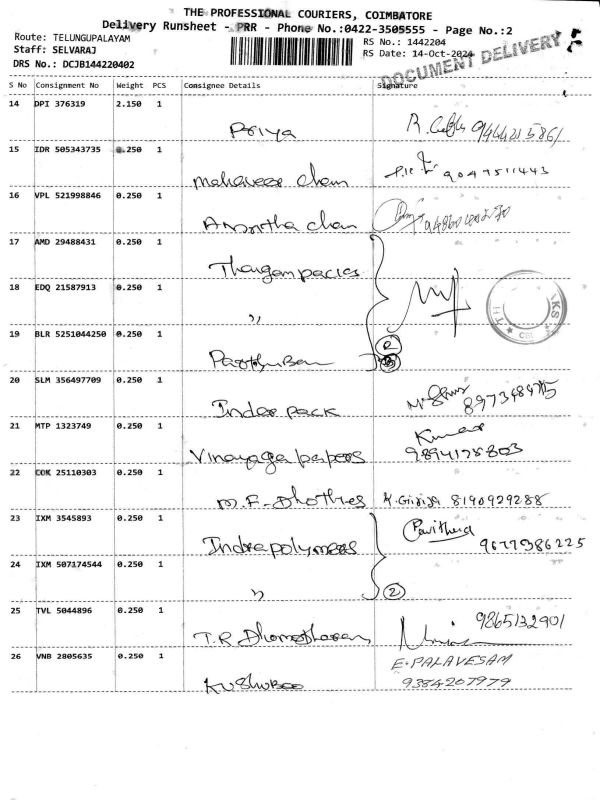 THE PROFESSIONAL COURIERS, COIMBATORE
Delivery Runsheet - PRR - Phone No.:0422-3505555 - Page No.:2
Route: TELUNGUPALAYAM
RS No.: 1442204
Staff: SELVARAJ
RS Date: 14-Oct-2024
DRS No.: DCJB144220402
DOCUMENT DELIVERY
S No Consignment No Weight PCS Consignee Details Signature
14 DPI 376319 2.150 1
Priya
15 IDR 505343735 0.250 1
Mahaveer Cham 9047511443
16 VPL 521998846 0.250 1
Amritha Cham
17 AMD 29488431 0.250 1
Thangam packs
18 EDQ 21587913 0.250 1
"
19 BLR 5251044250 0.250 1
Parthiban
20 SLM 356497709 0.250 1
Inder pack
21 MTP 1323749 0.250 1
Kumar
Vinayaga papers 9894178803
22 COK 25110303 0.250 1
M.F-Dhothies K.Girija 8190929288
23 IXM 3545893 0.250 1
Pavithra
Indrapolymers 9677386225
24 IXM 507174544 0.250 1
" 2
25 TVL 5044896 0.250 1
9865132901
T.R Dhamotharan
26 VNB 2805635 0.250 1
E.PALAVESAM
KUShuBoo 9384207979